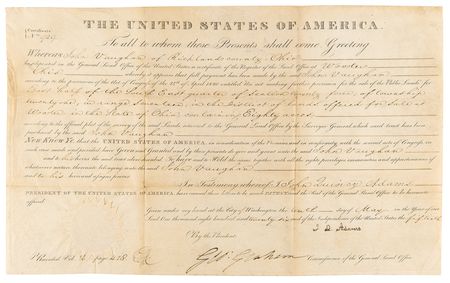 THE UNITED STATES OF AMERICA.
Certificate
No.
To all to whom these Presents shall come Greeting
Whereas John Vaughan of Richland County Ohio
ha deposited in the General Land Office of the United States a certificate of the Register of the Land Office at Wooster
Ohio whereby it appears that full payment has been made by the said John Vaughan
according to the provisions of the Act of Congress of the 24th of April 1820 entitled An act making further provision for the sale of the Public Lands for
East half of the South East quarter of Section twenty nine, of township
twenty one, in range seventeen, in the District of lands offered for sale at
Wooster in the State of Ohio containing Eighty acres
according to the official plat of the survey of the said Lands returned to the General Land Office by the Surveyor General which said tract has been
purchased by the said John Vaughan
NOW KNOW YE that the UNITED STATES OF AMERICA, in consideration of the Premises and in conformity with the several acts of Congress in
such case made and provided Have Given and Granted and by these presents Do give and Grant unto the said John Vaughan
and to his heirs the said tract above described To have and to Hold the same together with all the rights privileges immunities and appurtenances of
whatsoever nature thereunto belonging unto the said John Vaughan
and to his heirs and assigns forever
In Testimony whereof I John Quincy Adams
PRESIDENT OF THE UNITED STATES OF AMERICA have caused these Letters to be made Patent and the Seal of the General Land Office to be hereunto
affixed.
Given under my hand at the City of Washington the tenth day of May in the Year of our
Lord One thousand eight hundred and twenty six and of the Independence of the United States the fiftieth
By the President
J. Q. Adams
Geo: Graham Commissioner of the General Land Office
Recorded Vol page 418